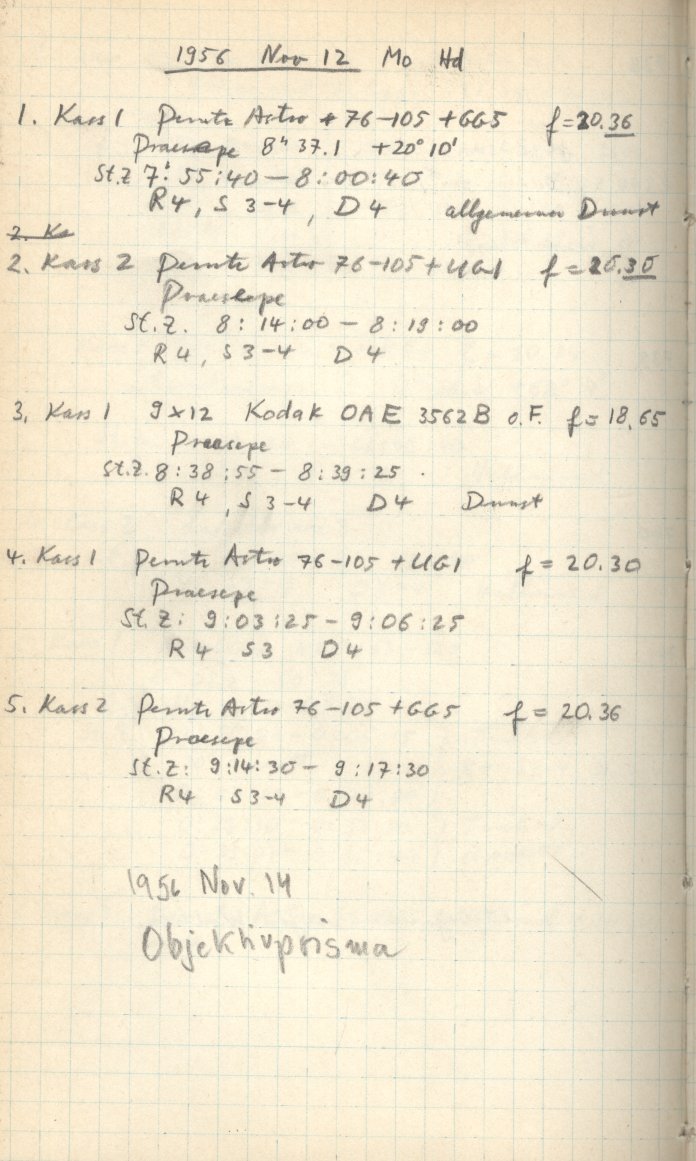 1956 Nov 12 Mo Hd
1. Kass 1 Perutz Astro + 76-105 + GG5 f=20.36
Praesepe 8h 37.1 +20° 10'
St.Z 7:55:40 — 8:00:40
R4, S 3-4, D4 allgemeiner Dunst
2. Ka
2. Kass 2 Perutz Astro 76-105 + UG1 f=20.30
Praesepe
St.Z. 8:14:00 — 8:19:00
R4, S 3-4 D4
3. Kass 1 9x12 Kodak OAE 3562B o.F. f=18.65
Praesepe
St.Z. 8:38:55 — 8:39:25.
R4, S 3-4 D4 Dunst
4. Kass 1 Perutz Astro 76-105 + UG1 f=20.30
Praesepe
St.Z: 9:03:25 - 9:06:25
R4 S3 D4
5. Kass 2 Perutz Astro 76-105 + GG5 f=20.36
Praesepe
St.Z: 9:14:30 - 9:17:30
R4 S3-4 D4
1956 Nov. 14
Objektivprisma